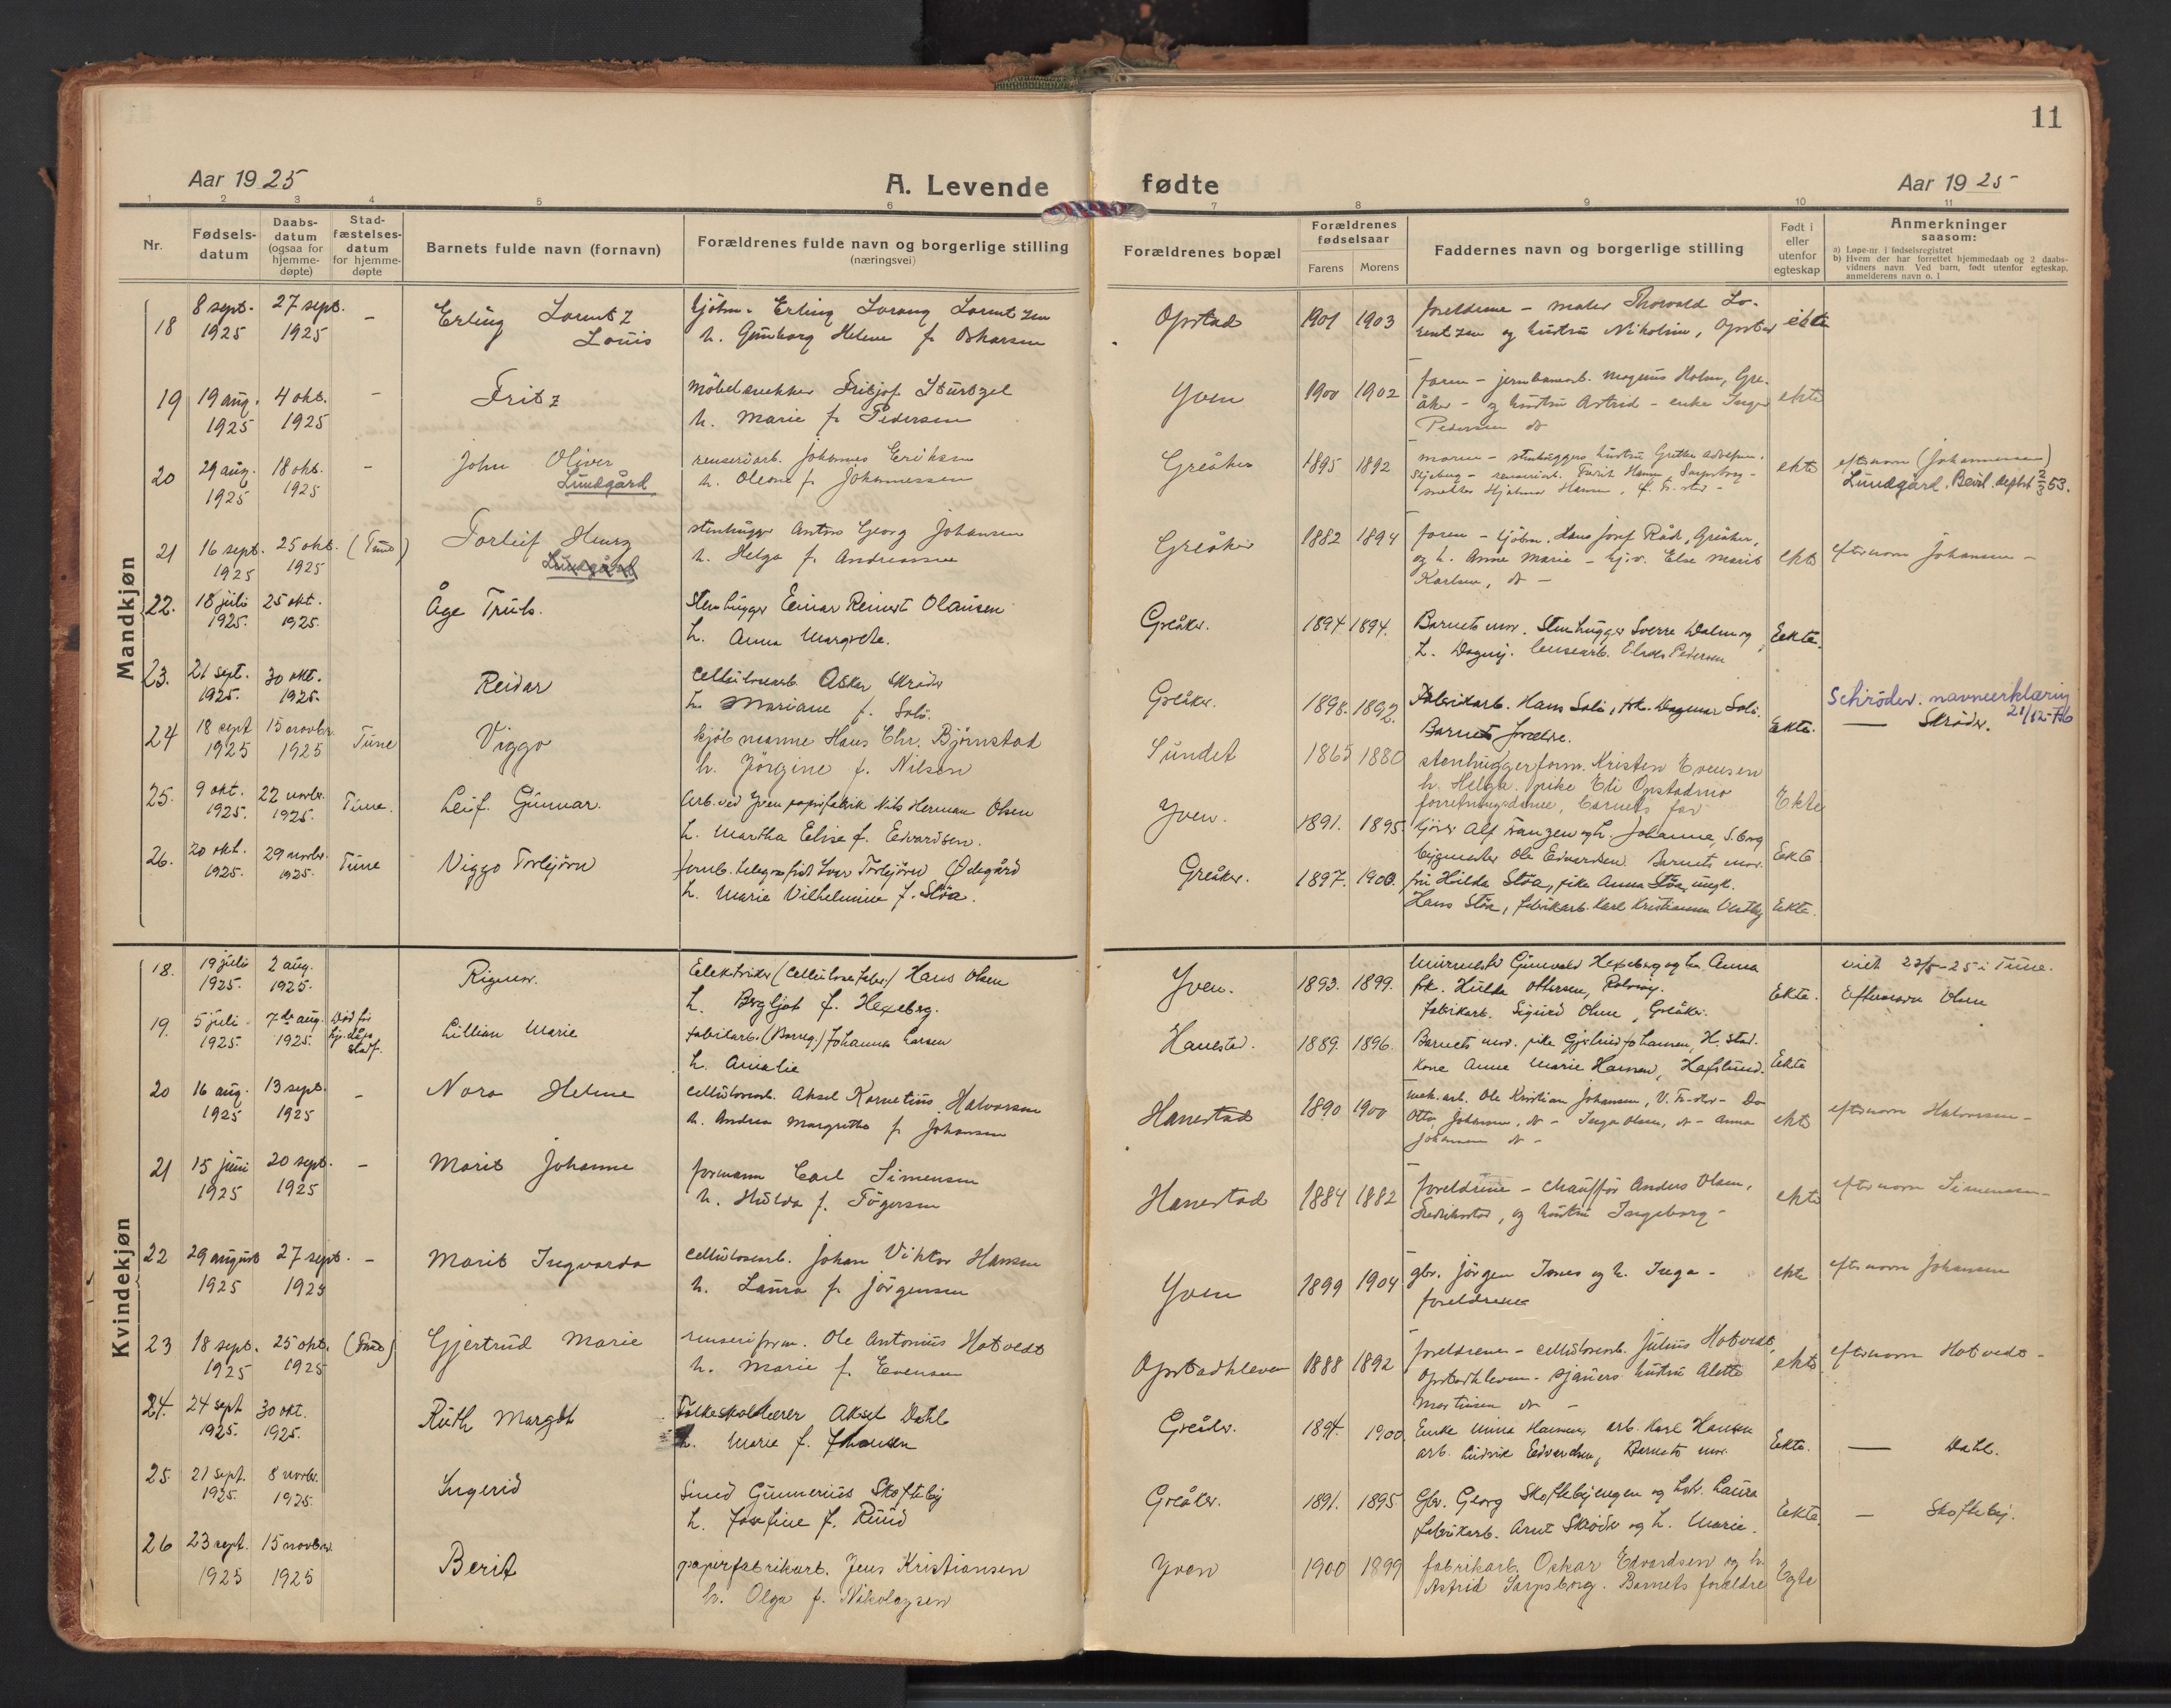 11
Aar 1925
A. Levende
fødte
Aar 1925
1 2 3 4 5 6 7 8 9 10 11
Nr.
Fødsels-
datum
Daabs-
datum
(ogsaa for
hjemme-
døpte)
Stad-
fæstelses-
datum
for hjemme-
døpte
Barnets fulde navn (fornavn)
Forældrenes fulde navn og borgerlige stilling
(næringsvei)
Forældrenes bopæl
Forældrenes
fødselsaar
Farens Morens
Faddernes navn og borgerlige stilling
Født i
eller
utenfor
egteskap
Anmerkninger
saasom:
a) Løpe-nr. i fødselsregistret
b) Hvem der har forrettet hjemmedaab og 2 daabs-
vidners navn. Ved barn, født utenfor egteskap,
anmelderens navn o. l.
Mandkjøn
18 8 sept. 1925 27 sept. 1925 -
Erling Lorentz
Louis
Erling Lorang Lorentzen
h. Gunborg Helene f. Oskarsen
Opstad 1901 1903
foreldrene - maler Thorvald Lo-
rentzen og hustru Nikoline, Opstad
ekte
19 19 aug. 1925 4 okt. 1925 -
Fritz
møbelsnekker Fritjof Sturtzel
h. Marie f. Pedersen
Yven 1900 1902
faren - jernbanearb. Magnus Holm, Gre-
åker - og hustru Astrid - enke Inger
Pedersen
ekte
20 29 aug. 1925 18 okt. 1925 -
John Oliver
Lundgård
renseriarb. Johannes Eriksen
h. Oleone f. Johannessen
Greåker 1895 1892
moren - stenhuggers hustru Grethe
ekte
efternavn (Johannessen)
Lundgård. Bevil. 2/3 53.
21 16 sept. 1925 25 okt. 1925 (Tune)
Torleif Henry
Lundgård
stenhugger Anton Georg Johansen
h. Helga f. Andreassen
Greåker 1882 1894
faren - Hans Josef Råde, Greåker,
og h. Anne Marie - Else Marit
Karlsen,
ekte
efternavn Johansen -
22. 18 juli 1925. 25 okt. 1925.
Åge Truls.
Stenhugger Einar Reinert Olausen
h. Anna Margrete.
Greåker. 1894 1894.
Barnets mor. Stenhugger Sverre Dalen og
h. Dagny. Pedersen
Eekte.
23. 21 sept. 1925. 30 okt. 1925.
Reidar
Cellulosearb. Asker Skrøder
h. Mariane f. Soli.
Greåker. 1898. 1892.
Fabrikarb. Hans Soli, frk. Dagmar Soli.
Barnets foreldre.
Eekte.
Schrøder. navneerklæring
21/12-76
— Skrøder.
24 18 sept 1925 15 novbr. 1925 Tune
Viggo
kjøbmanne Hans Chr. Bjørnstad
h. Jørgine f. Nilsen
Sundet 1865 1880
stenhuggerform. Kristen Evensen
h. Helga. pike Eli Opstadmo
forretningsdame, barnets far
Ekte
25. 9 okt. 1925. 22 novbr. 1925. Tune.
Leif. Gunnar.
Arb. ved Yven papirfabrik Nils Herman Olsen
h. Martha Elise f. Edvardsen.
Yven. 1891. 1895.
Alf Franzen og h. Johanne, S.borg
bygmester Ole Edvardsen. Barnets mor.
Eekte
26. 20 okt. 1925. 29 novbr. 1925. Tune
Viggo Torbjørn
Jernb. telegrafist Ivar Torbjørn Ødegård
h. Marie Vilhelmine f. Støa.
Greåker. 1897. 1900.
fru Hilda Støa, pike Anna Støa, ungk.
Hans Støa, fabrikarb. Karl Kristiansen Vestby
Eekte.
Kvindekjøn
18. 19 juli 1925. 2 aug. 1925.
Rigmor.
Elektriker (Cellulosefabr.) Hans Olsen
h. Bergljot f. Hexeberg.
Yven. 1893. 1899.
Murmester Gunvald Hexeberg og h. Anna
frk. Hulda Ottersen, Rolvsøy.
fabrikarb. Sigurd Olsen, Greåker.
Eekte.
viet 23/5-25 i Tune.
Efternavn Olsen
19. 5 juli 1925. 7de aug. 1925. død før
hj.dåps
stadf.
Lillian Marie
fabrikarb. (Borreg.) Johannes Larsen
h. Amalie
Hanestad. 1889. 1896.
Barnets mor. pike Johansen, H.stad.
Kone Anne Marie Hansen, Hafslund.
Eekte
20 16 aug. 1925 13 sept. 1925 -
Nora Helene
cellulosearb. Aksel Kornelius Halvorsen
h. Andrea Margrethe f. Johansen
Hanestad 1890 1900
mek. arb. Ole Kristian Johansen,
Otto Johansen, - Inga Olsen, - Anna
Johansen -
ekte
efternavn Halvorsen -
21 15 juni 1925 20 sept. 1925 -
Marit Johanne
formann Carl Simensen
h. Hulda f. Tøgersen
Hanestad 1884 1882
foreldrene - chauffør Anders Olsen,
Fredrikstad, og hustru Ingeborg -
ekte
efternavn Simensen -
22 29 august 1925 27 sept. 1925 -
Marit Ingvarda
cellulosearb. Johan Viktor Hansen
h. Laura f. Jørgensen
Yven 1899 1904
gbr. Jørgen Tones og h. Inga -
foreldrene
ekte
efternavn Johansen
23 18 sept. 1925 25 okt. 1925 (Tune)
Gjertrud Marie
renseriform. Ole Antonius Hotvedt
h. Marie f. Evensen
Opstadkleven 1888 1892
foreldrene - cellulosearb. Julius Hotvedt,
Opstadkleven - sjauers hustru Alette
Martinsen -
ekte
efternavn Hotvedt -
24. 24 sept 1925. 30 okt. 1925.
Ruth Margot
Folkeskolelærer Aksel Dahl
h. Marie f. Johansen
Greåker. 1894. 1900.
Enke Mina Hansen, arb. Karl Hansen
arb. Ludvik Edvardsen, Barnets mor.
Eekte.
— Dahl.
25. 21 sept. 1925. 8 novbr. 1925.
Ingerid
Smed Gunnerius Skofteby
h. Josefine f. Ruud
Greåker. 1891. 1895
Gbr. Georg Skoftebyengen og h. Laura
fabrikarb. Arnt Skrøder og h. Marie.
Eekte.
— Skofteby.
26 23 sept. 1925 15 novbr. 1925
Berit
papirfabrikarb. Jens Kristiansen
h. Olga f. Nikolaysen
Yven 1900 1899
fabrikarb. Oskar Edvardsen og h.
Astrid Sarpsborg. Barnets forældre
Egte